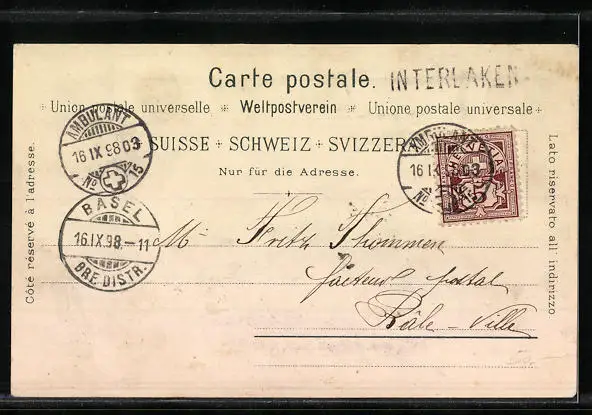 Carte postale. INTERLAKEN
Union postale universelle Weltpostverein Unione postale universale
SUISSE SCHWEIZ SVIZZERA
Nur für die Adresse.
Côte réservé à l'adresse.
Lato riservato all' indirizzo
AMBULANT
16 IX 98 03
No 15
BASEL
16.IX.98.-11
BRF.DISTR.
AMBULANT
16 IX 98 03
No
5
M. Fritz Thommen
facteur postal
Bâle-Ville